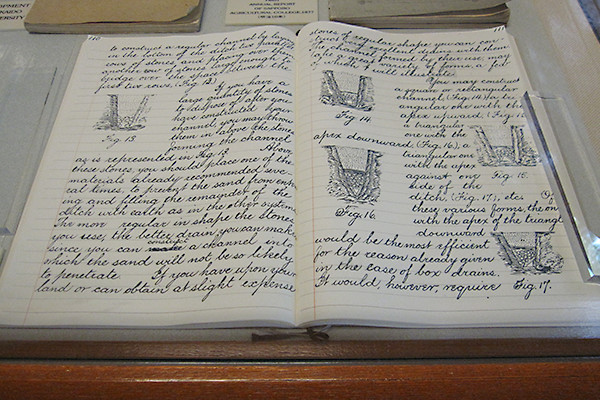 ELOPMENT
KAIDO
VERSITY
ANNUAL REPORT
OF SAPPORO
AGRICULTURAL COLLEGE
110
to construct a regular channel by laying
in the bottom of the ditch two parallel
rows of stones, and placing over these
another row of stones large enough to
bridge over the space between the
first two rows. (Fig. 12).
If you have a
large quantity of stones
to dispose of after you
have constructed your
channel, you may throw
them in above the stones
forming the channel
Fig. 13
as is represented in Fig. 13. Above
these stones, you should place one of the
materials already recommended seve-
ral times, to prevent the sand from enter-
ing and filling the remainder of the
ditch with earth as in the other systems.
The more regular in shape the stones
you use, the better drain you can make
since you can construct a channel into
which the sand will not be so likely
to penetrate. If you have upon your
land or can obtain at slight expense
111
stones of regular shape you can con-
struct very excellent drains with them.
The channel formed by their use may
take a great variety of forms, a few
of which I will illustrate.
You may construct
a square or rectangular
channel, (Fig. 14.) (or tri-
angular one with the
apex upward. (Fig. 15.)
Fig. 14.
a triangular
one with the
apex downward. (Fig. 16.), a
triangular one
with the apex
against one
side of the
ditch. (Fig. 17.), etc. Of
Fig. 15.
Fig. 16.
these various forms, the one
with the apex of the triangle
downward
would be the most efficient
for the reason already given
in the case of box drains.
It would, however, require
Fig. 17.